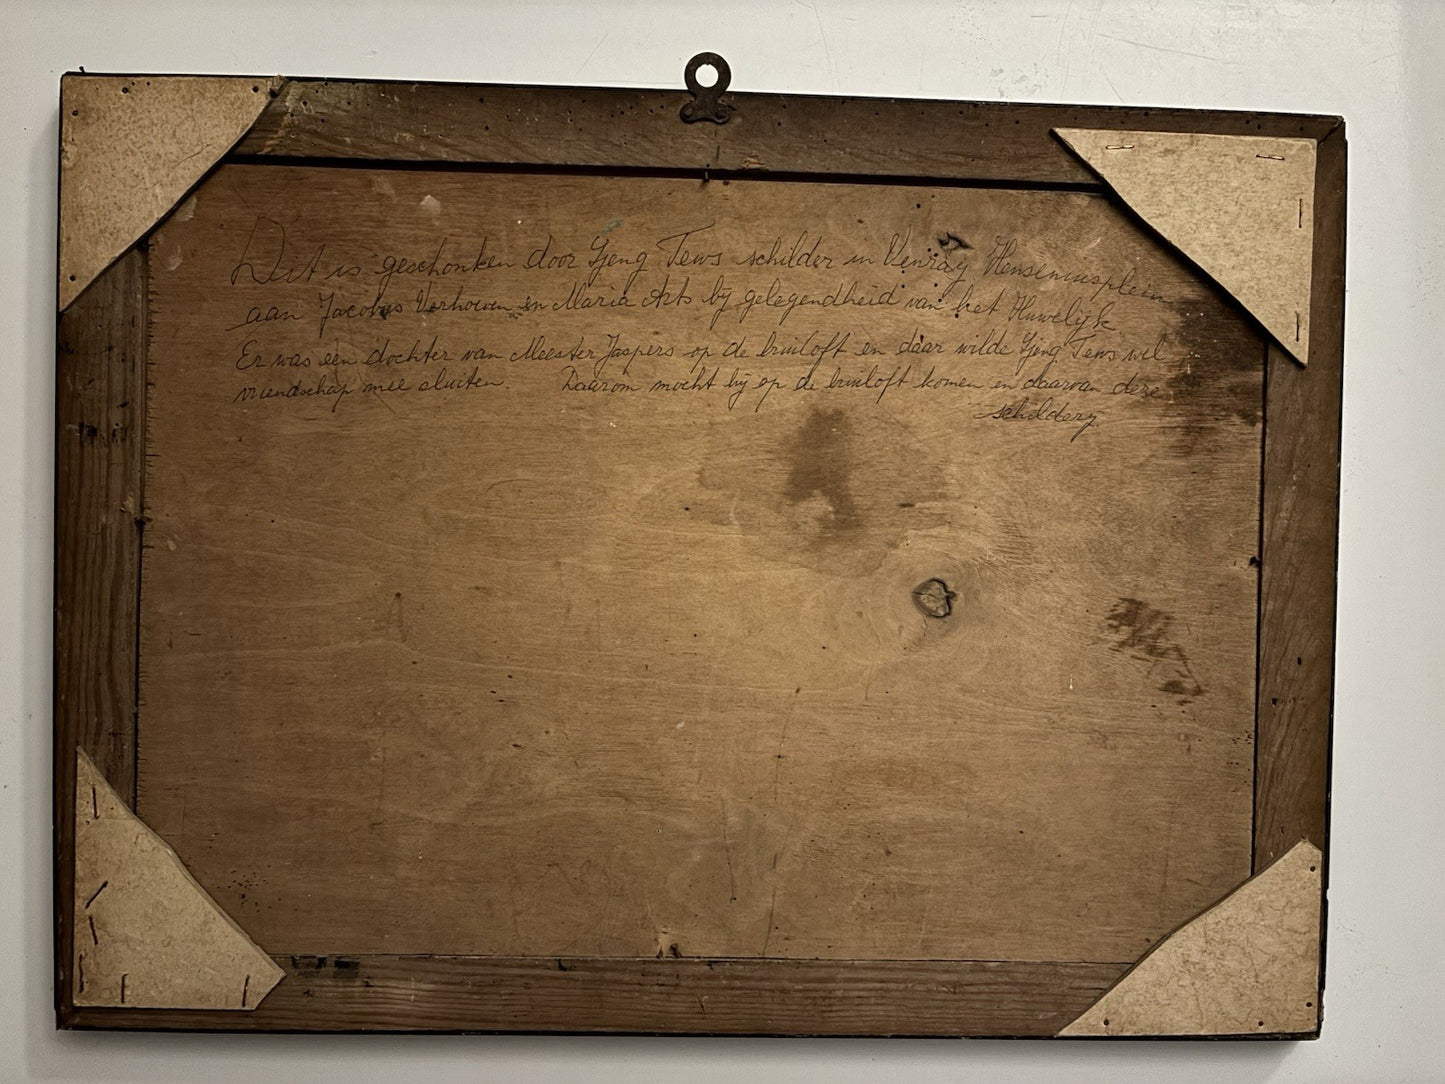 Dit is geschonken door Gjeng Tews schilder in Venray Henseniusplein
aan Jacobus Verhoeven en Maria Arts bij gelegendheid van het Huwelijk
Er was een dochter van Meester Jaspers op de bruiloft en daar wilde Gjeng Tews wel
vriendschap mee sluiten. Daarom mocht hij op de bruiloft komen en daarvan deze
schildery